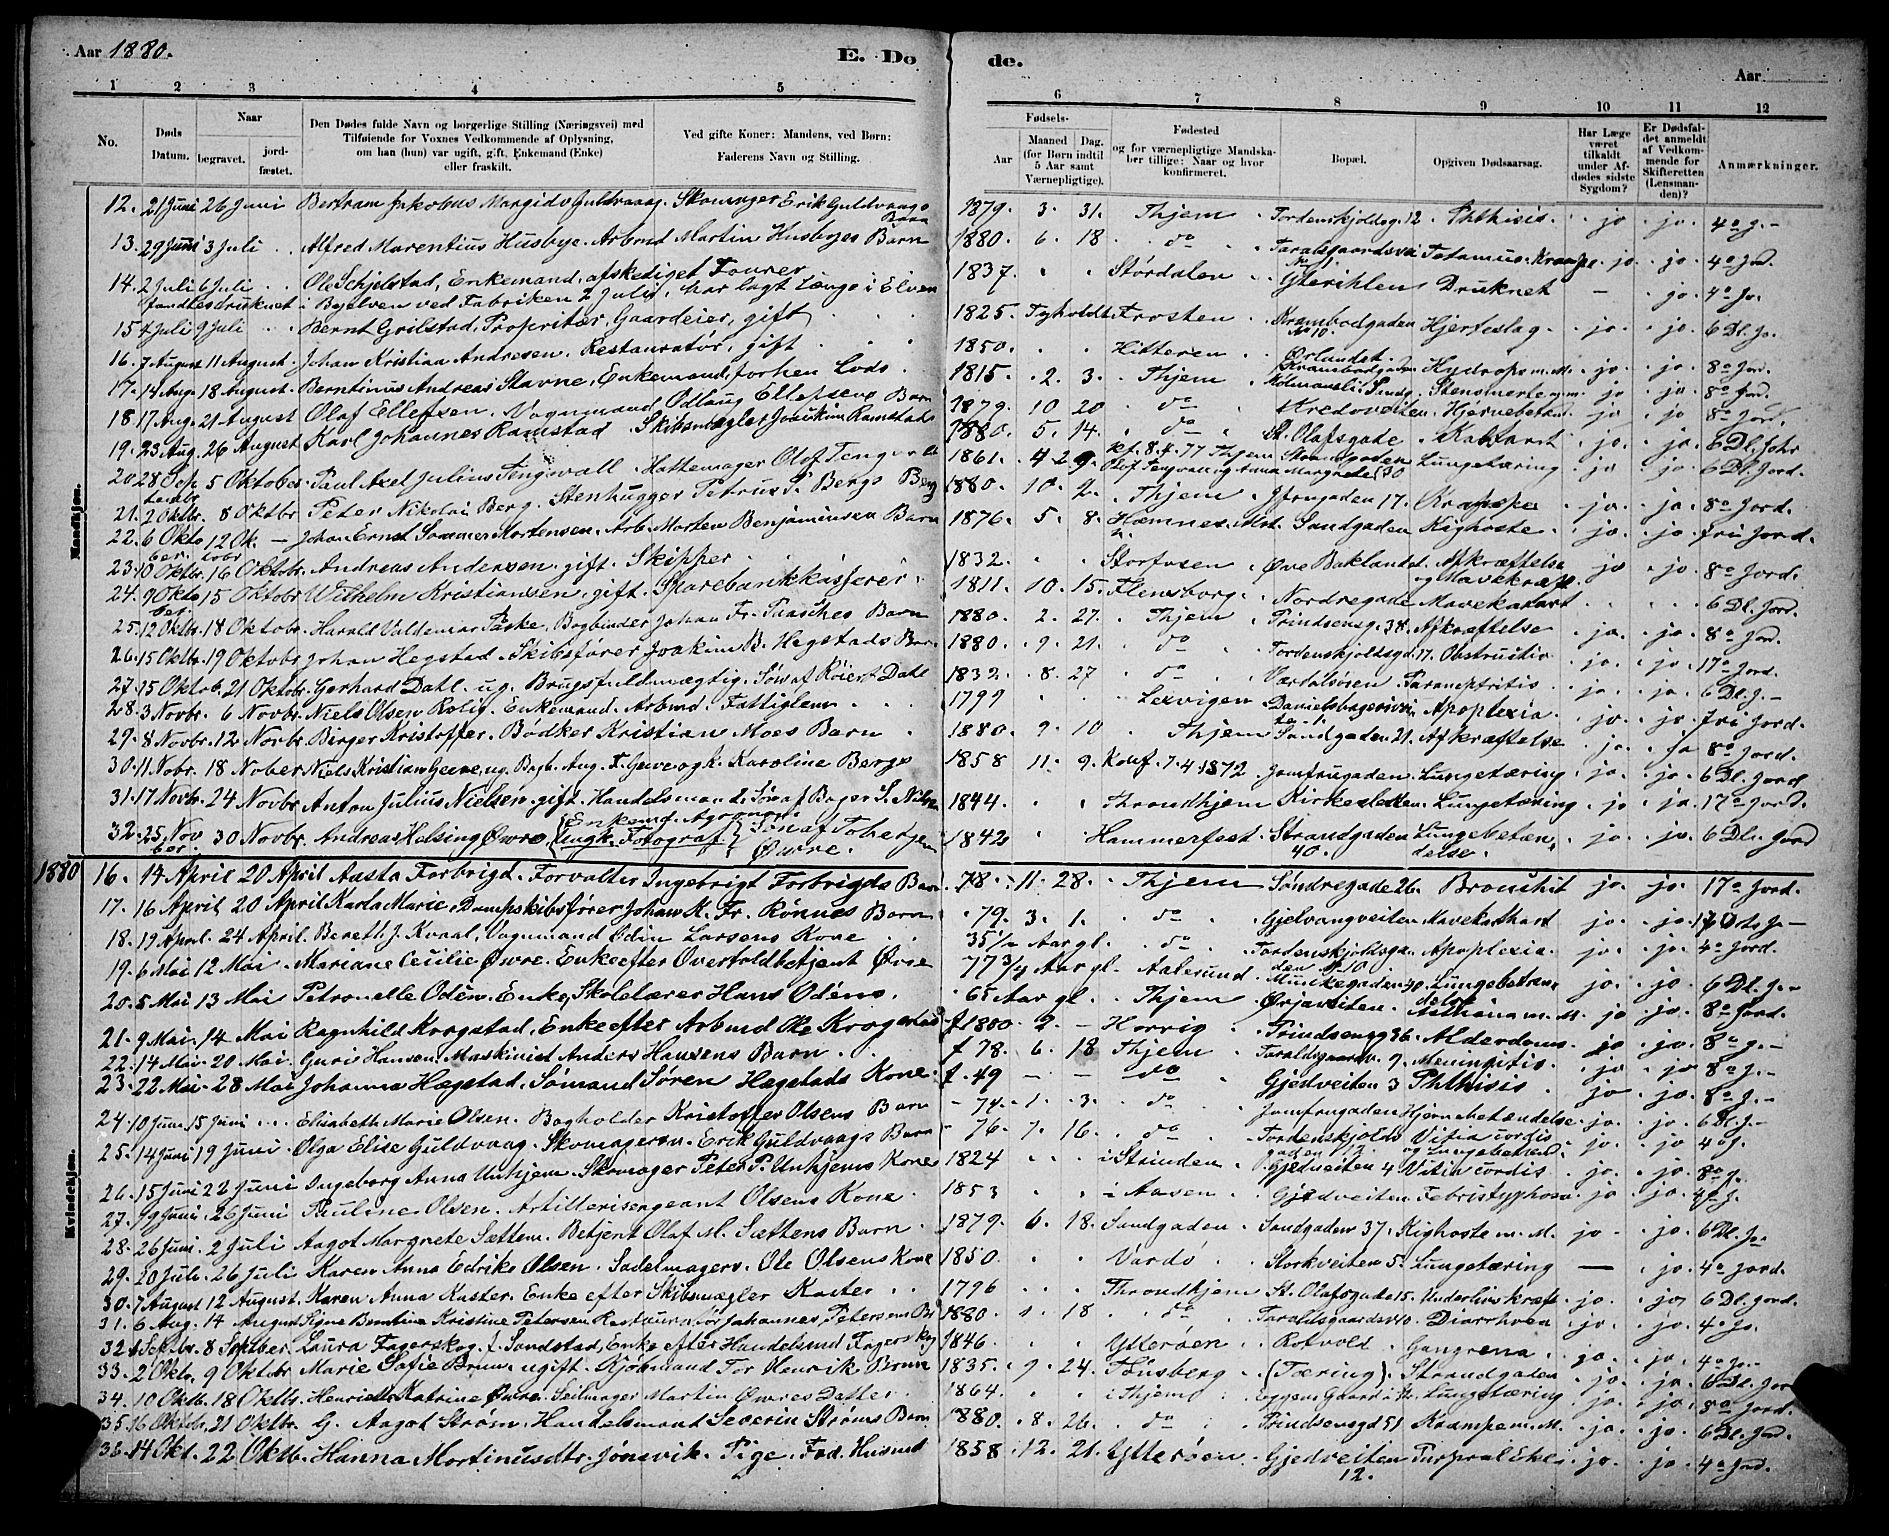 Aar 1880.
E. Do
de.
Aar
1 2 3 4 5
6 7 8 9 10 11 12
No.
Døds Datum.
Naar
begravet.
jord-fæstet.
Den Dødes fulde Navn og borgerlige Stilling (Næringsvei) med
Tilføiende for Voxnes Vedkommende af Oplysning,
om han (hun) var ugift, gift, Enkemand (Enke)
eller fraskilt.
Ved gifte Koner: Mandens, ved Børn:
Faderens Navn og Stilling.
Fødsels-
Aar
Maaned Dag.
(for Børn indtil
5 Aar samt
Værnepligtige).
Fødested
og for værnepligtige Mandska-
ber tillige: Naar og hvor
konfirmeret.
Bopæl.
Opgiven Dødsaarsag.
Har Læge
været
tilkaldt
under Af-
dødes sidste
Sygdom?
Er Dødsfal-
det anmeldt
af Vedkom-
mende for
Skifteretten
(Lensman-
den)?
Anmærkninger.
Mandkjøn.
12. 21 Juni 26 Juni Bertram Jakobus Margido Guldvaag. Skomager Erik Guldvaags Barn 1879. 3. 31. Thjem Tordenskjoldsg. 12 Phthisis. jo jo. 4de J.-
13. 29 Juni 3 Juli Alfred Marentius Husbye. Arbmd Martin Husbyes Barn 1880. 6. 18. do Taralsgaardsvei Tetamus. Krampe jo. jo. 4de Jord.
14. 2 Juli 6 Juli Ole Schjelstad, Enkemand, afskediget Fourer 1837. Størdalen Ytterihlens Druknet — jo. 4de Jo.
fandtes druknet i Bøjelven ved Fabriken 2 Juli, har lagt længe i Elven
15 4 Juli 9 Juli Bernt Grilstad, Propritær, Gaardeier, gift 1825. Tyholdt. Frosten Krambodgaden No 10 Hjerteslag. jo. jo. 6 Dl. Jo.
16. 7 August 11 August. Johan Kristian Andresen. Restauratør, gift 1850. Hitteren Ørlandet. Krambodgaden Hydrops m. M. jo. jo. 8de Jord.
17. 14 Aug. 18 August. Berntinus Andreas Stavne, Enkemand, forhen Lods. 1815. 2. 3. Thjem jo jo. 8de Jord.
18. 17 Aug. 21 August Olaf Ellefsen. Vognmand Odlaug Ellefsens Barn 1879. 10 20 do Kredsveiten Hjernebetæn. jo jo. 8de Jord.
19. 23 Aug. 26 August Karl Johannes Ramstad Skibsmægler Joakim Ramstads 1880. 5. 14. do St. Olafsgade Katarrh jo. jo. 6 Dl. Johr
20. 28 September 5 Oktober Paul Axel Julius Tengsvall. Hattemager Olof Teng 1861. 4 29. kf. 8.4.77 Thjem Strandgaden 30 Lungetæring jo jo. 6 Dl. Jord.
21. 2 Oktbr. 8 Oktbr Peter Nikolai Berg. Stenhugger Petrus P. Bergs Barn 1880. 10. 2. Thjem Ilengaden 17. Krampe jo. jo. 8de Jord.
22. 6 Oktober. 12 Oktobr. Johan Ernst Sommer Mortensen. Arb. Morten Benjaminsen Barn 1876. 5. 8. Hæmnes Sandgaden Kighoste jo. jo. fri Jord.
23. 10 Oktbr. 16 Oktobr. Andreas Andersen. gift. Skipper 1832. Storfosen Øvre Baklandet Afkræftelse og Mavekræft. jo jo. 8de Jord.
24. 9 Oktober 15 Oktobr Wilhelm Kristiansen, gift. Sparebankkasserer. 1811. 10. 15. Flensborg. Nordregade Mavekatarh 6 Dl. Jord.
25. 12 Oktbr. 18 Oktobr. Harald Valdemar Paske, Bogbinder Johan Fr. Paasches Barn 1880. 2. 27. Thjem Prindsensg. 38. Afkræftelse jo. jo. 8de Jord.
26. 15 Oktb. 19 Oktobr Johan Hegstad. Skibsfører Joakim B. Hegstads Barn 1880. 9. 21. do Tordenskjoldsgd 17. Obstructio jo. jo. 17de Jord.
27. 15 Oktob. 21 Oktobr. Gerhard Dahl. ug. Brugsfuldmægtig. Søn af Røiert Dahl 1832. 8. 27 do Værdalsøren Paranefritis jo. jo. 6 Dl. J.-
28. 3 Novbr. 6 Novbr. Niels Olsen Rolig. Enkemand. Arbmd. Fattiglem 1799 Lexvigen Danielsbageriveien Apoplexia. jo. jo. fri Jord.
29. 8 Novbr. 12 Novbr Birger Kristoffer. Bødker Kristian Moes Barn 1880. 9. 10 Thjem Sandgaden 21. Afkræftelse jo. jo 8de Jord.
30. 11 Nobr. 18 Nober Niels Kristian Geeve, ug. Bagb. Aug. F. Geeve og k. Karoline Bergs 1858 11. 9. Konf. 7.4.1872 Jomfrugaden Lungetæring jo. jo. 6 Dl. Jord.
31. 17 Novbr. 24 Novbr. Anton Julius Nielsen, gift. Handelsmand. Søn af Bager S. Nilsen 1844. Throndhjem Kirkesletten. Lungetæring jo jo. 17de Jord.
32. 25 November. 30 Novbr. Andreas Helsing Øwre {Enkemd. Agronom. Ungk. Fotograf} Søn af Toherjen Øwre. 1842 Hammerfest Strandgaden 40. Lungebetændelse. jo. jo. 6 Dl. Jord
Kvindekjøn.
1880 16. 14 April 20 April Aasta Forbrigd. Forvalter Ingebrigt Forbrigds Barn 78. 11. 28. Thjem Søndregade 26. Bronshit jo. jo. 17de Jord.
17. 16 April 20 April Karla Marie. Dampskibsfører Johan K. Fr. Rønnes Barn 79. 3. 1. do Gjelvangveiten Mavekathart jo. jo. 17de J.-
18. 19 April. 24 April. Bereth J. Kvaal, Vognmand Odin Larsens Kone 35 1/2 Aar gl. do Tordenskjoldsgaden 10. Apoplexia. jo jo. 4de Jord.
19. 6 Mai 12 Mai Mariane Cecilie Øwre. Enke efter Overtoldbetjent Øvre 77 3/4 Aar gl. Aalesund Munkegaden 40 Lungebetændelse jo. jo. 6 Dl. J.-
20. 5 Mai 13 Mai Petronelle Odén. Enke, Skolelærer Hans Odéns. 65 Aar gl. Thjem Ørjaveiten Asthma m. M. jo jo. 8de Jord.
21. 9 Mai. 14 Mai Ragnhild Krogstad, Enke efter Arbmd Ole Krogstad f 1800. 2. — Horrig Prindsensg 36. Alderdoms. jo. jo. 8de J.-
22. 14 Mai. 20 Mai. Guris Hansen. Maskinist Anders Hansens Barn f 78. 6. 18 Thjem Taraldsgaardsv. 9. Meningitis. jo jo 8de J.-
23. 22 Mai. 28 Mai Johanna Hægstad. Sømand Søren Hægstads Kone f. 49 — — do Gjedveiten 3 Phthisis. jo jo. 8de J.-
24. 10 Juni. 15 Juni Elisabeth Marie Olsen. Bogholder Kristoffer Olsens Barn 74. 1. 3. do Jomfrugaden Hjernebetændelse jo. jo. 6 Dl. J.-
25. 14 Juni 19 Juni Olga Elise Guldvaag. Skomagersv. Erik Guldvaags Barn 76. 7. 16. do Tordenskjoldsgaden 12. Vitia cordis og Lungebetænd. jo. jo. 4de J.
26. 15 Juni 22 Juni Ingeborg Anna Unhjem. Skomager Peter P. Unhjems Kone 1824 i Strinden Gjedveiten 4 Vitia cordis jo. jo. 8de J.
27. 19 Juni. 26 Juni Pauline Olsen. Artillerisergeant Olsens Kone 1853 i Aasen Gjedveiten. Febris typhosa jo jo. 4de J.
28. 26 Juni 2 Juli Aagot Margrete Sættem. Betjent Olaf M. Sættens Barn 1879. 6. 18. Sandgaden Sandgaden 37. Kighoste m. M. jo jo. 6 Dl. Jo-
29. 20 Juli. 26 Juli Karen Anna Edrike Olsen. Sadelmagersv. Ole Olsens Kone 1850. Vardø Storkveiten 5. Lungetæring — jo. 4de Jord.
30. 7 August 12 August. Karen Anna Kaster. Enke efter Skibsmægler Kaster 1796 Throndhjem St. Olafsgade 15. Underlivskræft jo. jo 6 Dl. Jord.
31. 6 Aug. 14 August Signe Berntine Kristine Petersen Restauratør Johannes Petersens Br 1880. 1. 18 do Taraldsgaardsv 40. Diarrhoea jo. jo. 4de Jo.
32 1 Septbr. 8 Septber. Laura Fagerskog f. Sandstad, Enke efter Handelsmd Fagerskog 1846. Ytterøen Rotvold Gangrena jo. jo. 4de Jo.-
33. 2 Oktb. 9 Oktobr Marie Sofie Bruun ugift. Kjøbmand Tor Henrik Bruun 1835. 9. 24. Tønsberg (Tæring). Strandgaden jo. jo. 6 Dl. Jor
34. 10 Oktb. 18 Oktb. Henriette Katrine Øwre. Seilmager Martin Øwres Datter 1864. i Thjem Lungetæring jo. jo. 8de Jord.
35. 16 Oktob. 21 Oktbr. G. Aagot Strøm. Handelsmand Severin Strøms Barn 1880. 8. 26. do Prindsensgd 51 Krampe m. M. jo. jo. 6 Dl. Jord.
36. 14 Okt. 22 Oktb. Hanna Martinusdtr. Jønsvik. Pige. Fad. Husmd 1858. 12. 21. Ytterøen Gjedveiten 12. jo. jo. 4de Jord.